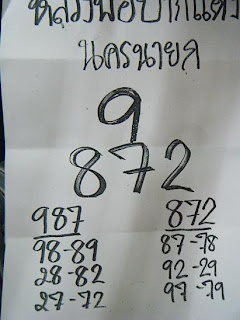 หลวงพ่อปากแดง
นครนายก
9
872
987 872
98-89 87-78
28-82 92-29
27-72 97-79